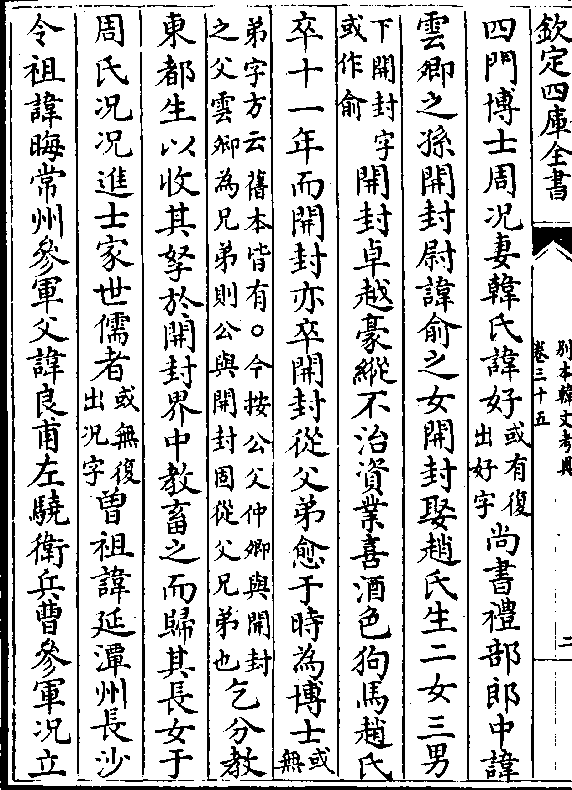 欽定四庫全書
别本韓文考異
卷三十五
二
四門博士周况妻韓氏諱好或有復出好字尚書禮部郎中諱
雲卿之孫開封尉諱俞之女開封娶趙氏生二女三男
下開封字或作俞開封卓越豪縱不治資業喜酒色狗馬趙氏
卒十一年而開封亦卒開封從父弟愈于時為博士或無
弟字方云舊本皆有○今按公父仲卿與開封之父雲卿為兄弟則公與開封固從父兄弟也乞分教
東都生以收其孥於開封界中教畜之而歸其長女于
周氏况况進士家世儒者或無復出况字曽祖諱延潭州長沙
令祖諱晦常州參軍父諱良甫左驍衛兵曹參軍况立